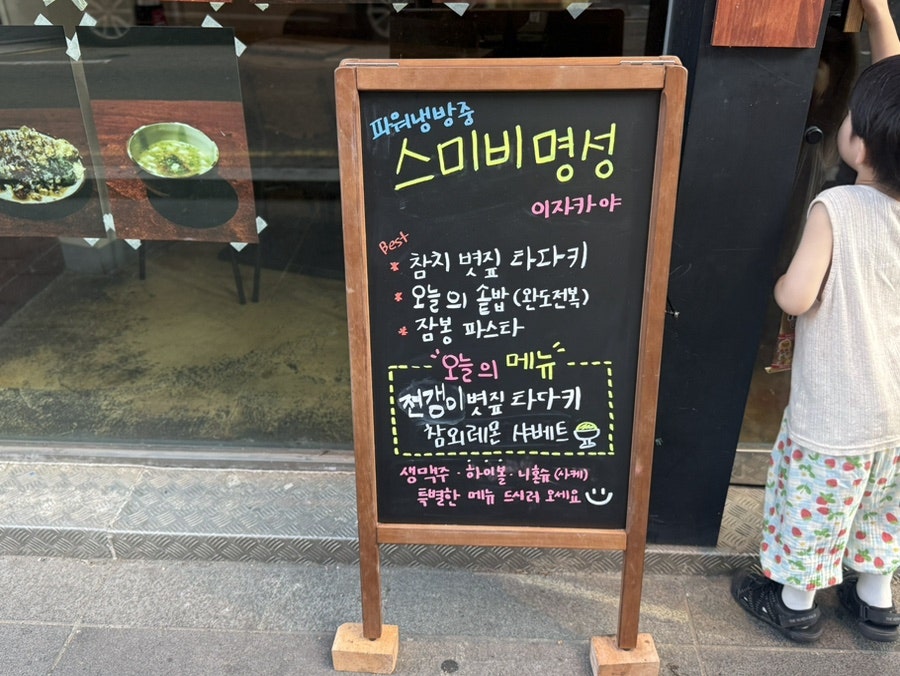 파워냉방중
스미비 명성
이자카야
Best
* 참치 볏짚 타다키
* 오늘의 솥밥 (완도전복)
* 잠봉 파스타
오늘의 메뉴
전갱이볏짚 타다키
참외레몬 샤베트
생맥주 · 하이볼 · 니혼슈 (사케)
특별한 메뉴 드시러 오세요